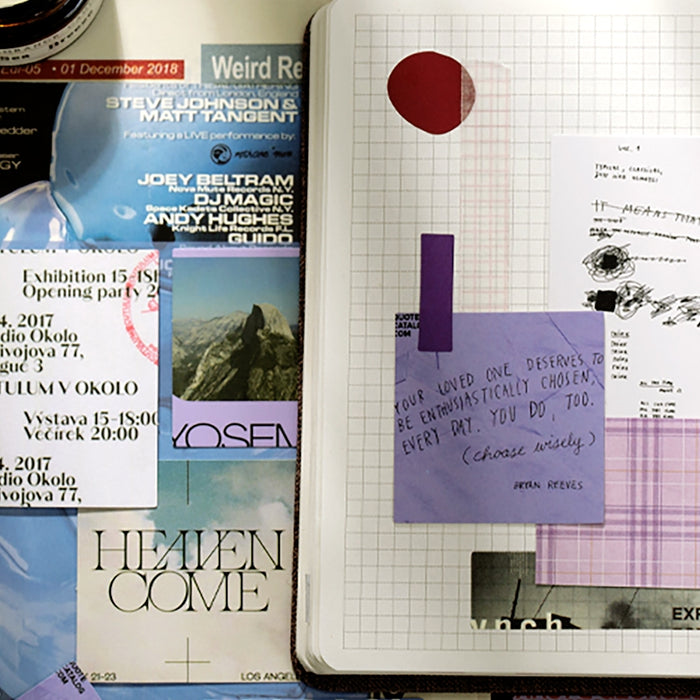 01 December 2018
Weird Re
Direct from London, England
STEVE JOHNSON &
MATT TANGENT
Featuring a LIVE performance by:
JOEY BELTRAM
Nova Mute Records N.Y.
DJ MAGIC
Space Kadets Collective N.Y.
ANDY HUGHES
Knight Life Records F.L.
GUIDO
Exhibition 15-18H
Opening party 20
4. 2017
dio Okolo
ivojova 77,
guč 3
TULUM V OKOLO
Výstava 15-18:00
Večírek 20:00
4. 2017
dio Okolo
ivojova 77,
YOSEM
HEAVEN
COME
21-23
LOS ANGEL
QUOTE
CATALOG
COM
IT MEANS
QUOTE
CATALOG
.COM
YOUR LOVED ONE DESERVES TO
BE ENTHUSIASTICALLY CHOSEN.
EVERY DAY. YOU DO, TOO.
(choose wisely)
BRYAN REEVES
ynch
EXP